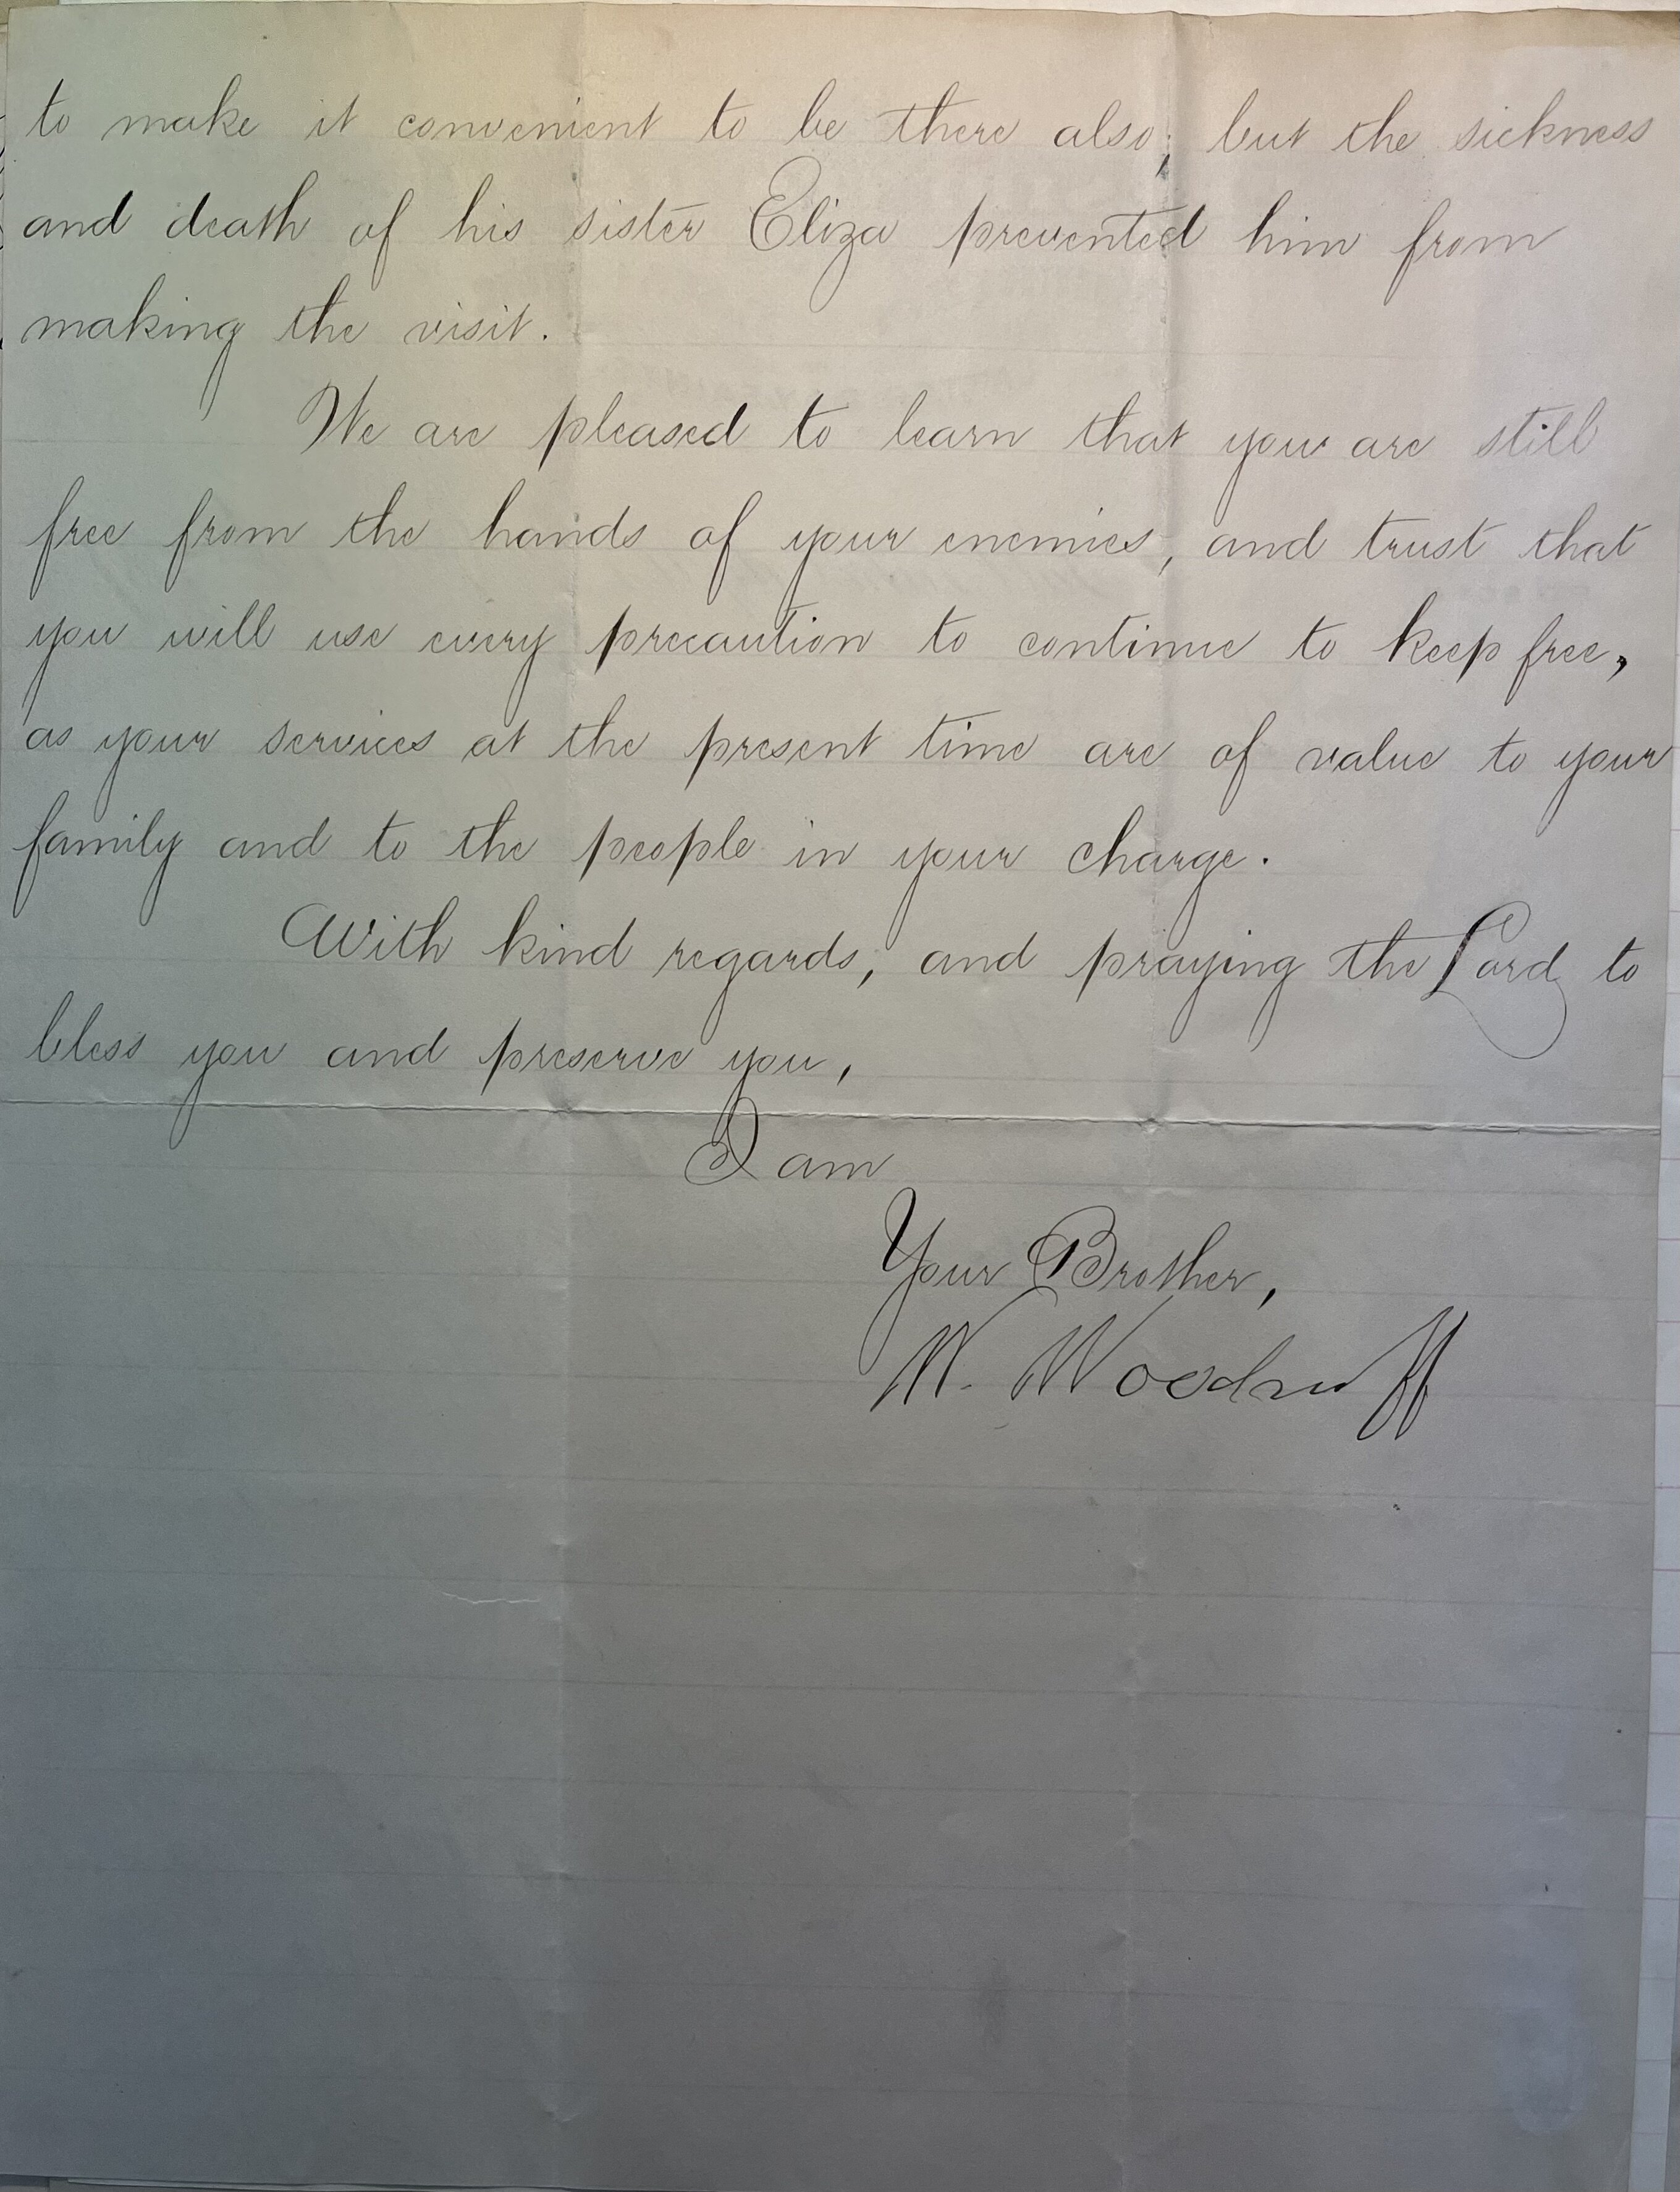 to make it convenient to be there also; but the sickness
and death of his sister Eliza prevented him from
making the visit.
We are pleased to learn that you are still
free from the hands of your enemies, and trust that
you will use every precaution to continue to keep free,
as your services at the present time are of value to your
family and to the people in your charge.
With kind regards, and praying the Lord to
bless you and preserve you,
I am
Your Brother,
W. Woodruff